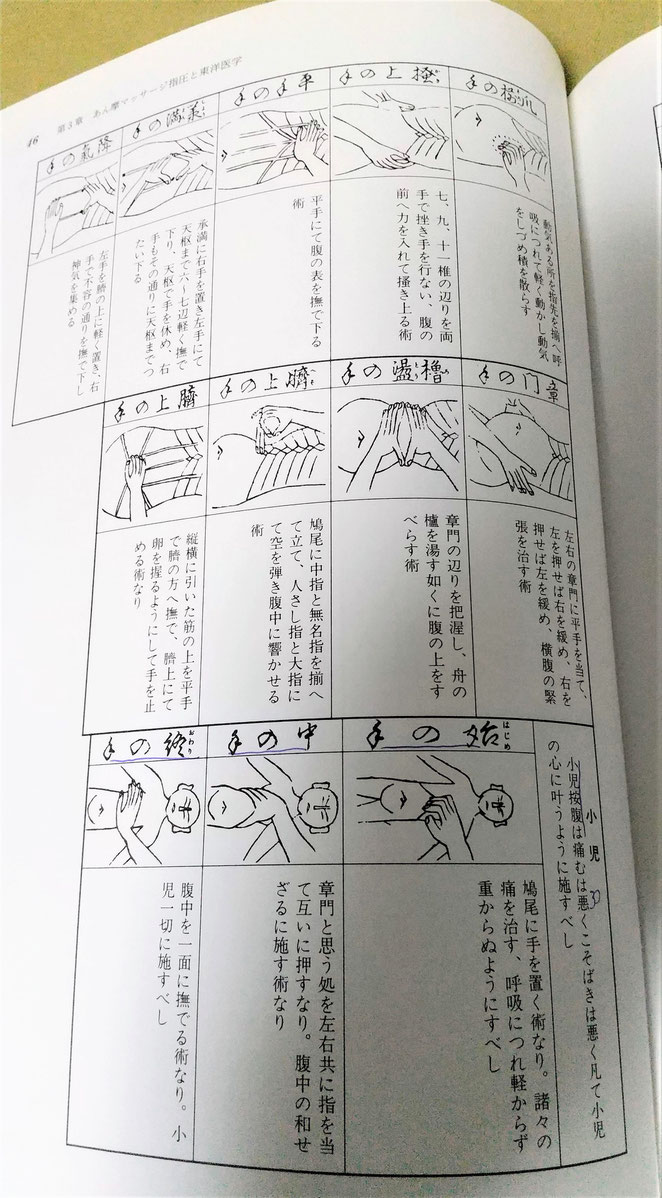 46 第3章 あん摩マッサージ指圧と東洋医学
の手
動気ある所を指先を揃へ呼
吸につれて軽く動かし動気
をしづめ積を散らす
掻上の手
七、九、十一椎の辺りを両
手で挫き手を行ない、腹の
前へ力を入れて掻き上る術
平手の手
平手にて腹の表を撫で下る
術
承満の手
承満に右手を置き左手にて
天枢まで六〜七辺軽く撫で
下り、天枢で手を休め、右
手もその通りに天枢までつ
たい下る
降氣の手
左手を臍の上に軽く置き、右
手で不容の通りを撫で下し
神気を集める
章門の手
左右の章門に平手を当て、
左を押せば右を緩め、右を
押せば左を緩め、横腹の緊
張を治す術
櫓盪の手
章門の辺りを把渥し、舟の
櫨を湯す如くに腹の上をす
べらす術
臍上の手
鳩尾に中指と無名指を揃へ
て立て、人さし指と大指に
て空を弾き腹中に響かせる
術
臍上の手
縦横に引いた筋の上を平手
で臍の方へ撫で、臍上にて
卵を握るようにして手を止
める術なり
小児
30
小児按腹は痛むは悪くこそばきは悪く凡て小児
の心に叶うように施すべし
始の手
はじめ
鳩尾に手を置く術なり。諸々の
痛を治す、呼吸につれ軽からず
重からぬようにすべし
中の手
章門と思う処を左右共に指を当
て互いに押すなり。腹中の和せ
ざるに施す術なり
終の手
おわり
腹中を一面に撫でる術なり。小
児一切に施すべし